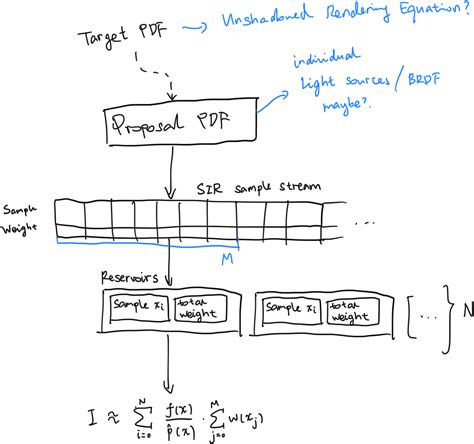 Target PDF → Unshadowed Rendering Equation?
individual
Light sources / BRDF
maybe?
Proposal PDF
SIR sample stream
Sample
Weight
...
M
Reservoirs
Sample xᵢ
total
weight
Sample xᵢ
total
weight
[ ... ] } N
I ≈ ∑_{i=0}^{N} f(x) / p̂(x) · ∑_{j=0}^{M} w(xⱼ)